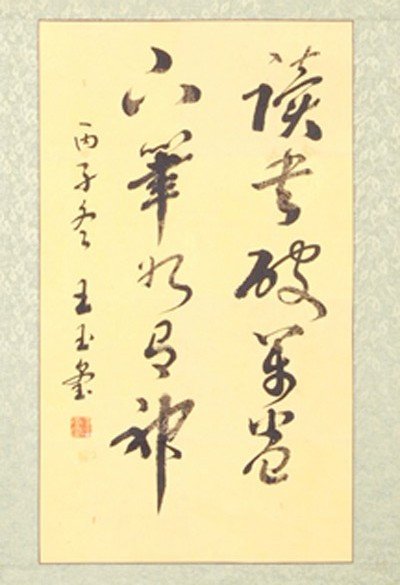 讀書破萬卷
下筆如有神
丙子冬 王玉